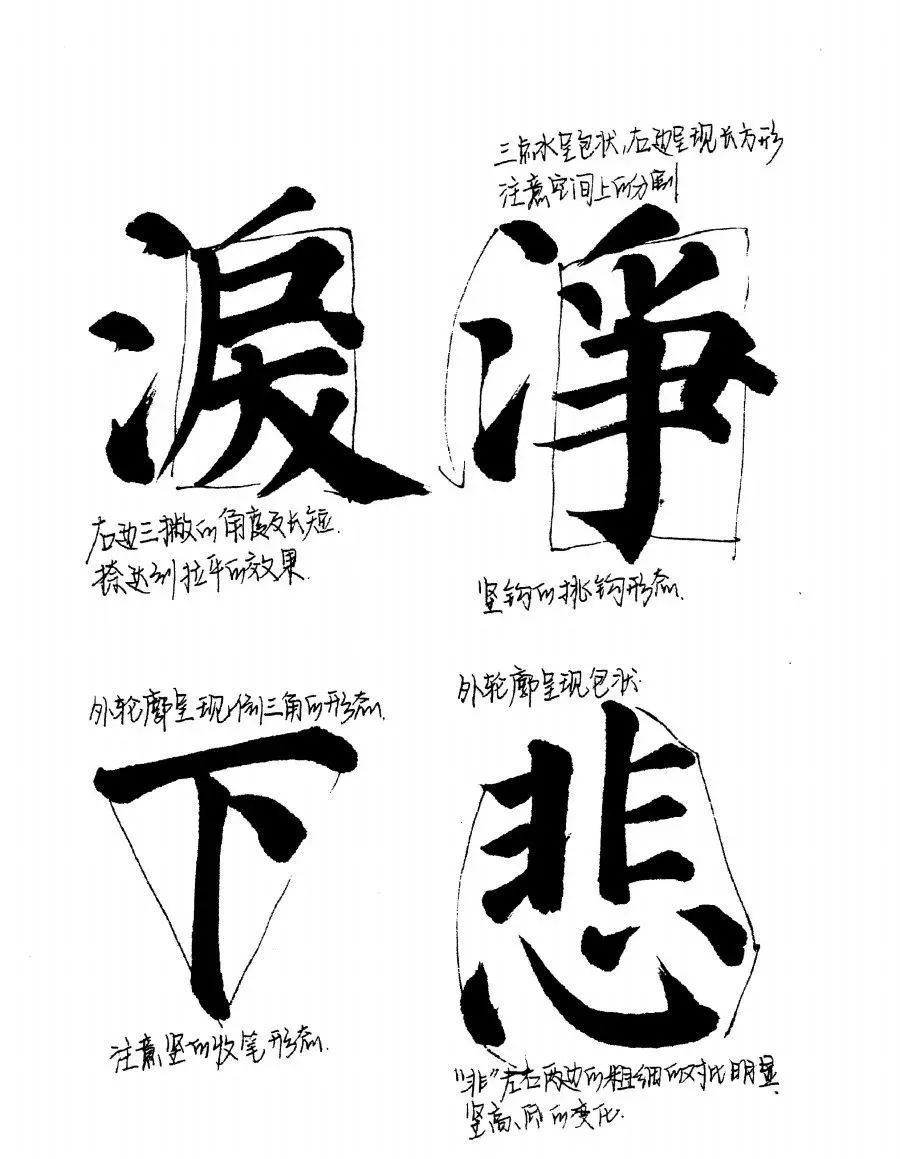 三点水呈包状,右边呈现长方形
注意空间上的分割
淚
淨
右边三撇的角度及长短.
捺达到拉平的效果.
竖钩的挑钩形态.
外轮廓呈现倒三角的形态.
外轮廓呈现包状.
下
悲
注意竖的收笔形态.
"非"左右两边的粗细的对比明显.
竖高、低的变化.